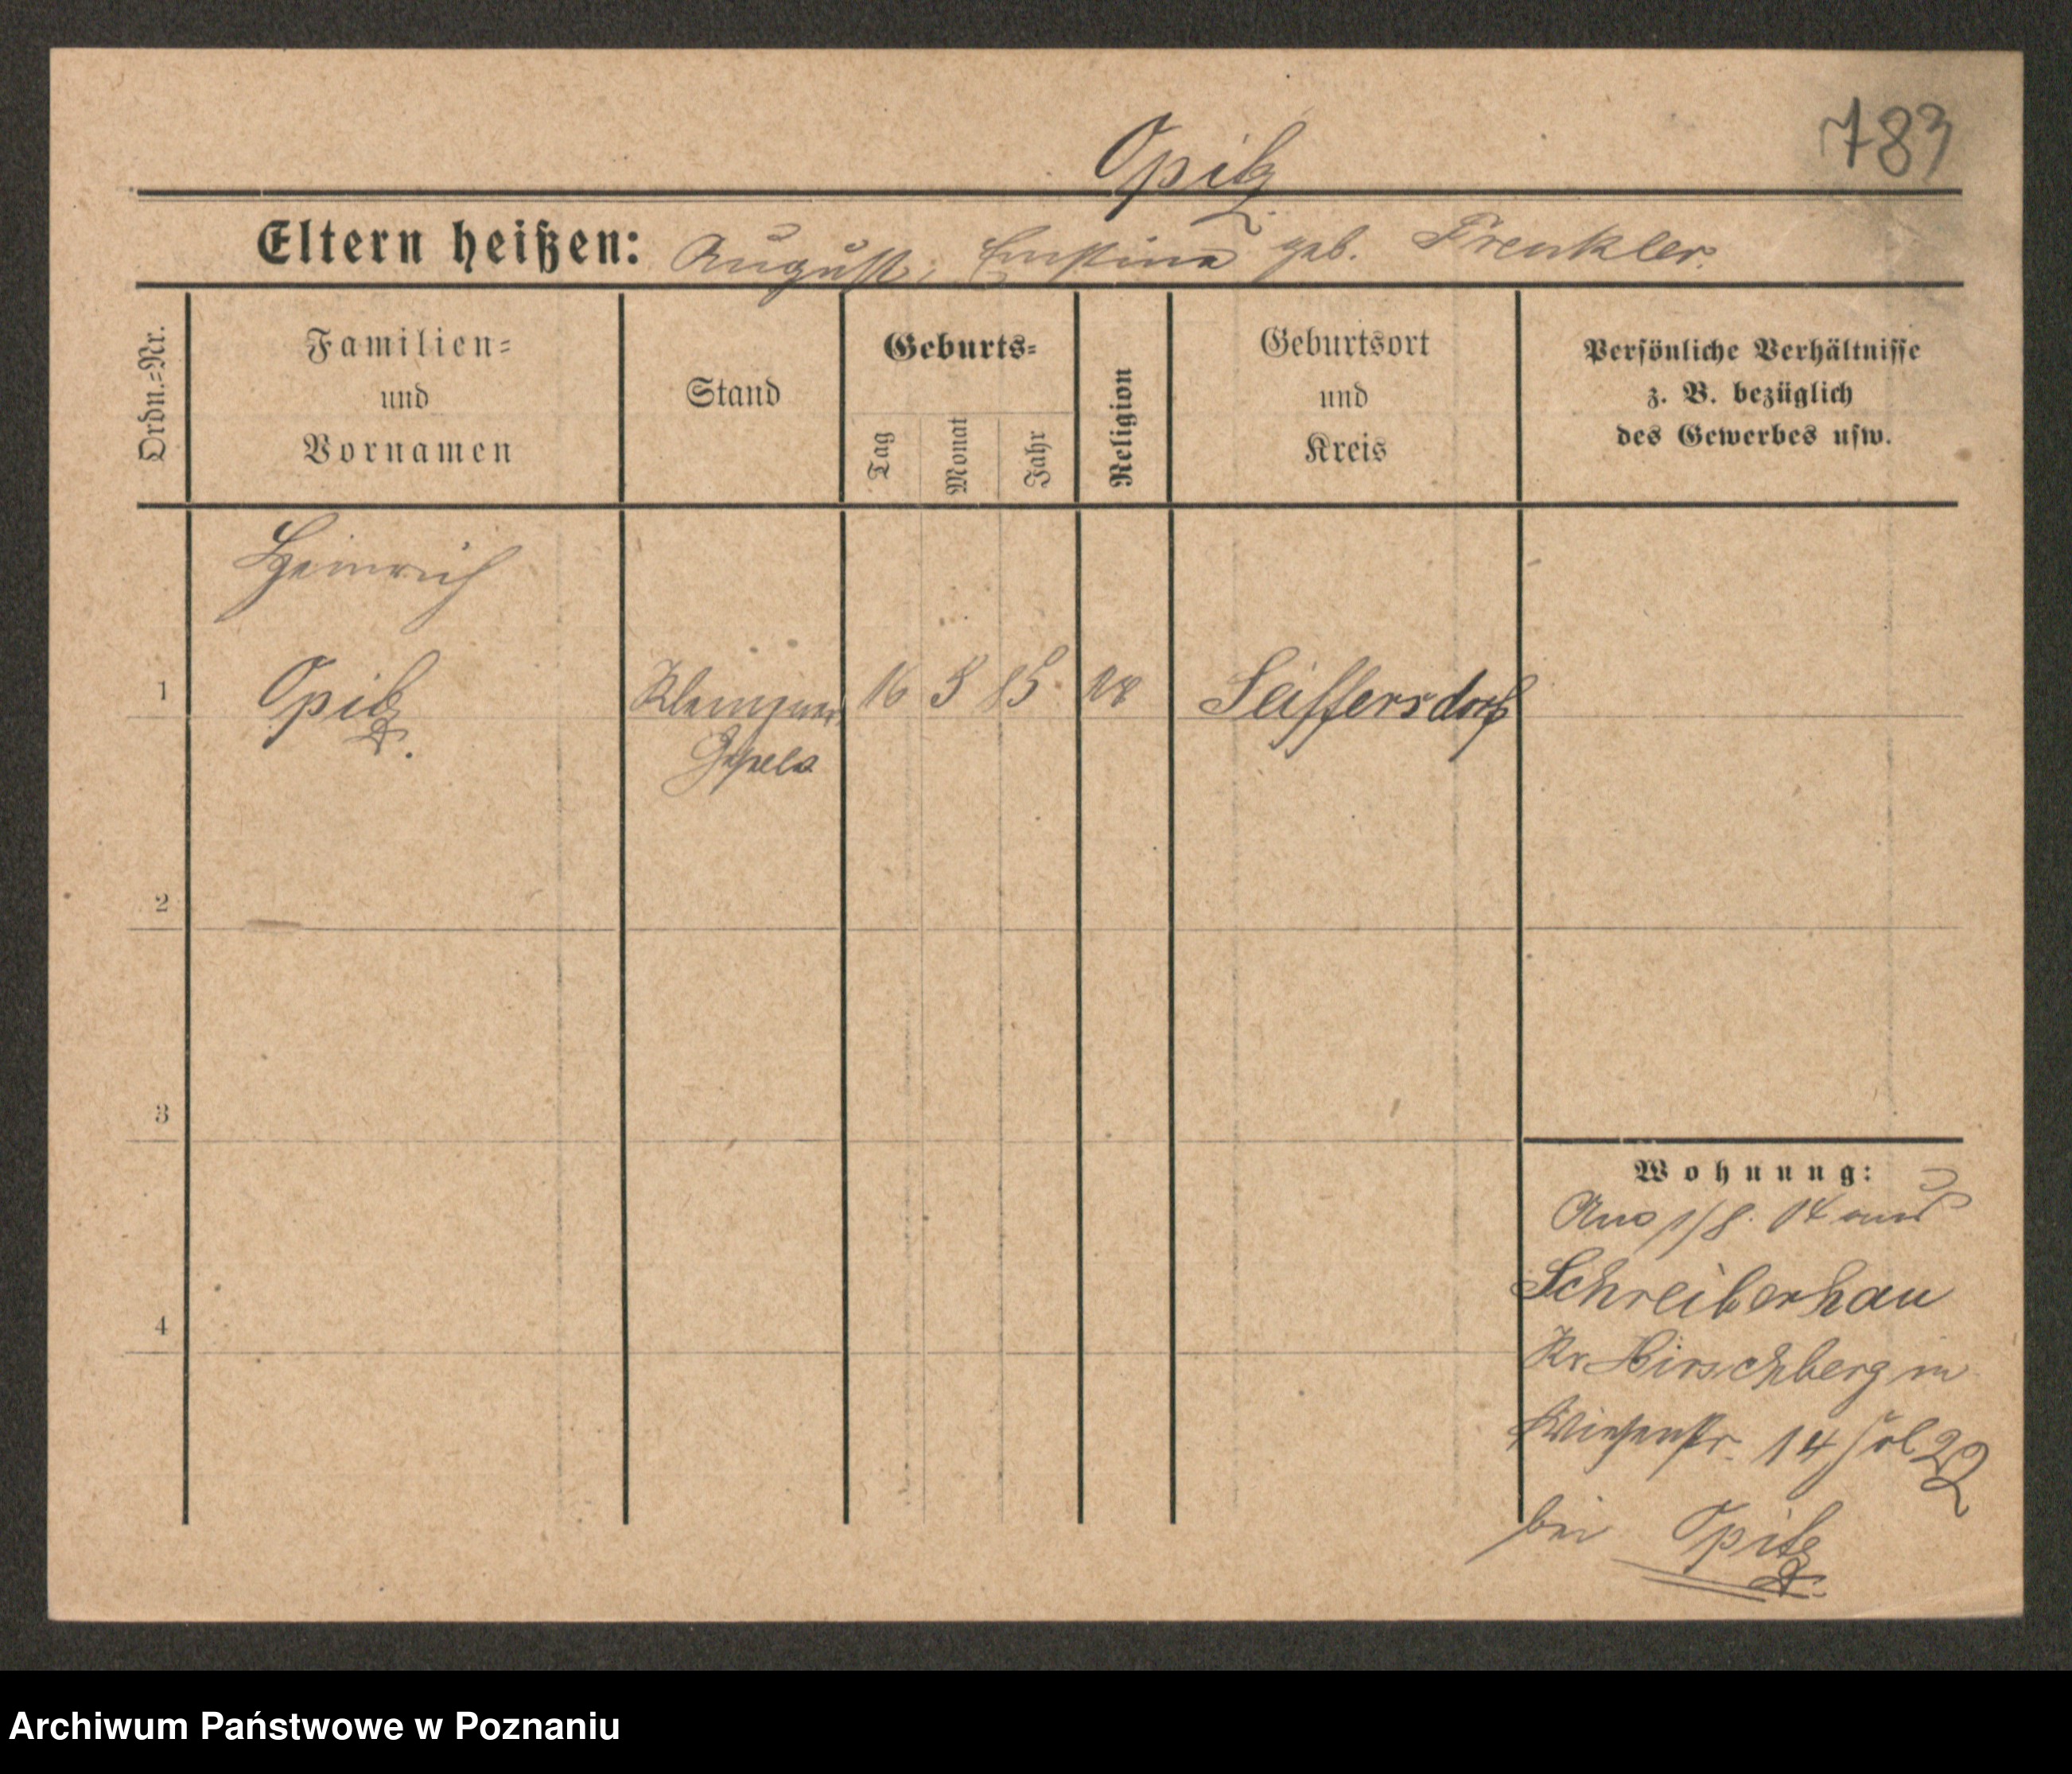 783
Opitz
Eltern heißen: August, Ernstine geb. Frenkler.
Ordn.=Nr.
Familien=
und
Vornamen
Stand
Geburts=
Tag
Monat
Jahr
Religion
Geburtsort
und
Kreis
Persönliche Verhältnisse
z. B. bezüglich
des Gewerbes usw.
Heinrich
1 Opitz. Klempner 16 3 85 Seiffersdorf
2
3
4
Wohnung:
1/8. 14 aus
Schreiberhau
Kr. Hirschberg in
Wiesenstr. 14
bei Opitz.
Archiwum Państwowe w Poznaniu